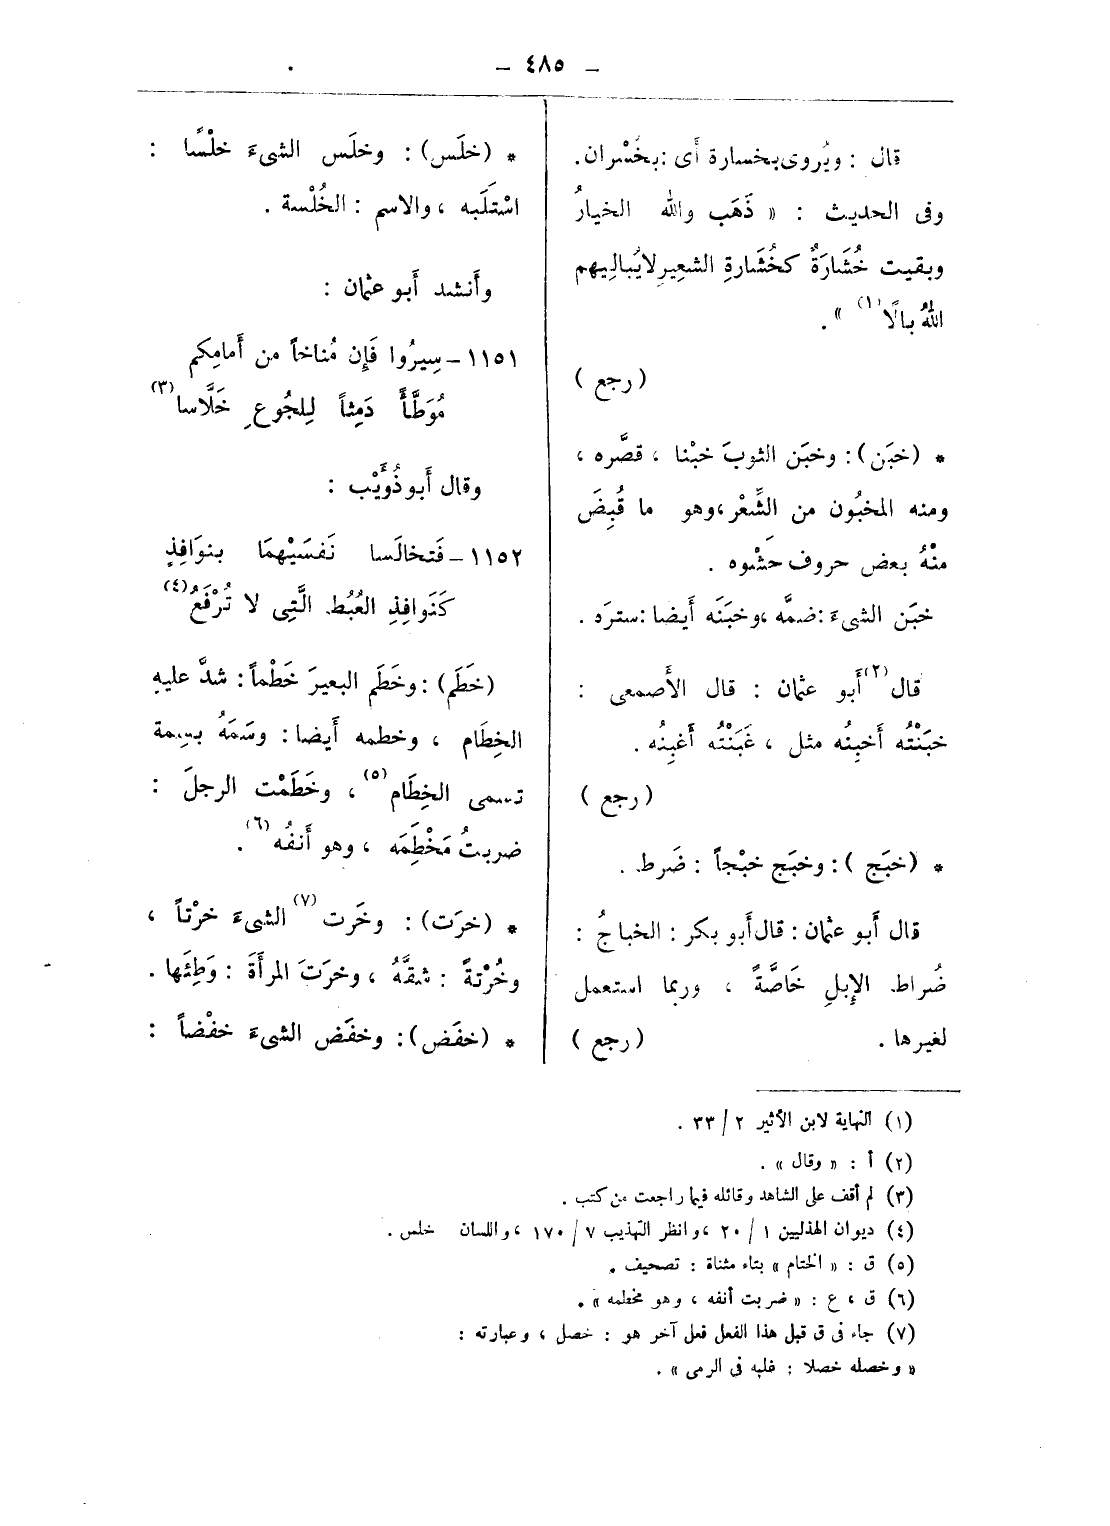 – ٤٨٥ –
قال : ويُروى بخسارة أَى : بخُسْران.
وفى الحديث : « ذَهَب والله الخيارُ
وبقيت خُشَارَةٌ كخُشَارةِ الشعِيرِ لايُبالِيهم
اللهُ بالًا (١) » .
( رجع )
* (خبَن) : وخبَن الثوبَ خبْنا ، قصَّره ،
ومنه المخبُون من الشِّعْر ، وهو ما قُبِضَ
منْهُ بعض حروف حَشْوه .
خبَن الشىءَ : ضمَّه ، وخبَنَه أَيضا : سترَه .
قال (٢) أَبو عثمان : قال الأَصمعى :
خبَنْتُه أَخبِنُه مثل ، غَبَنْتُه أَغبِنُه .
( رجع )
* (خبَج ) : وخبَج خبْجاً : ضَرط .
قال أَبو عثمان : قال أَبو بكر : الخباجُ :
ضُراط الإِبلِ خَاصَّةً ، وربما استعمل
لغيرها . ( رجع )
* (خلَس) : وخلَس الشىءَ خلْسًا :
اسْتَلَبه ، والاسم : الخُلْسة .
وأَنشد أَبو عثمان :
١١٥١ – سِيرُوا فَإِن مُناخاً من أَمامِكم
مُوَطَّأً دَمِثاً لِلجُوعِ خَلَّاسا (٣)
وقال أَبو ذُؤَيْب :
١١٥٢ – فَتخالَسا نَفسَيْهمَا بنوَافِذٍ
كَنَوافِذِ العُبُط الَّتِى لا تُرْفَعُ (٤)
(خَطَم) : وخَطَم البعيرَ خَطْماً : شدَّ عليهِ
الخِطَام ، وخطمه أَيضا : وسَمَهُ بسِمة
تسمى الخِطَام (٥) ، وخَطَمْت الرجلَ :
ضربتُ مَخْطَمِه ، وهو أَنفُه (٦) .
* (خرَت) : وخَرت (٧) الشىءَ خرْتاً ،
وخُرْتةً : شقَّهُ ، وخرَتَ المرأَةَ : وَطِئَها .
* (خفَض) : وخفَض الشىءَ خفْضاً :
(١) النهاية لابن الأثير ٢ / ٣٣ .
(٢) أ : « وقال » .
(٣) لم أقف على الشاهد وقائله فيما راجعت من كتب .
(٤) ديوان الهذليين ١ / ٢٠ ، وانظر التهذيب ٧ / ١٧٠ ، واللسان خلس .
(٥) ق : « الختام » بتاء مثناة : تصحيف .
(٦) ق ، ع : « ضربت أنفه ، وهو مخطمه » .
(٧) جاء فى ق قبل هذا الفعل فعل آخر هو : خصل ، وعبارته :
« وخصله خصلا : غلبه فى الرمى » .